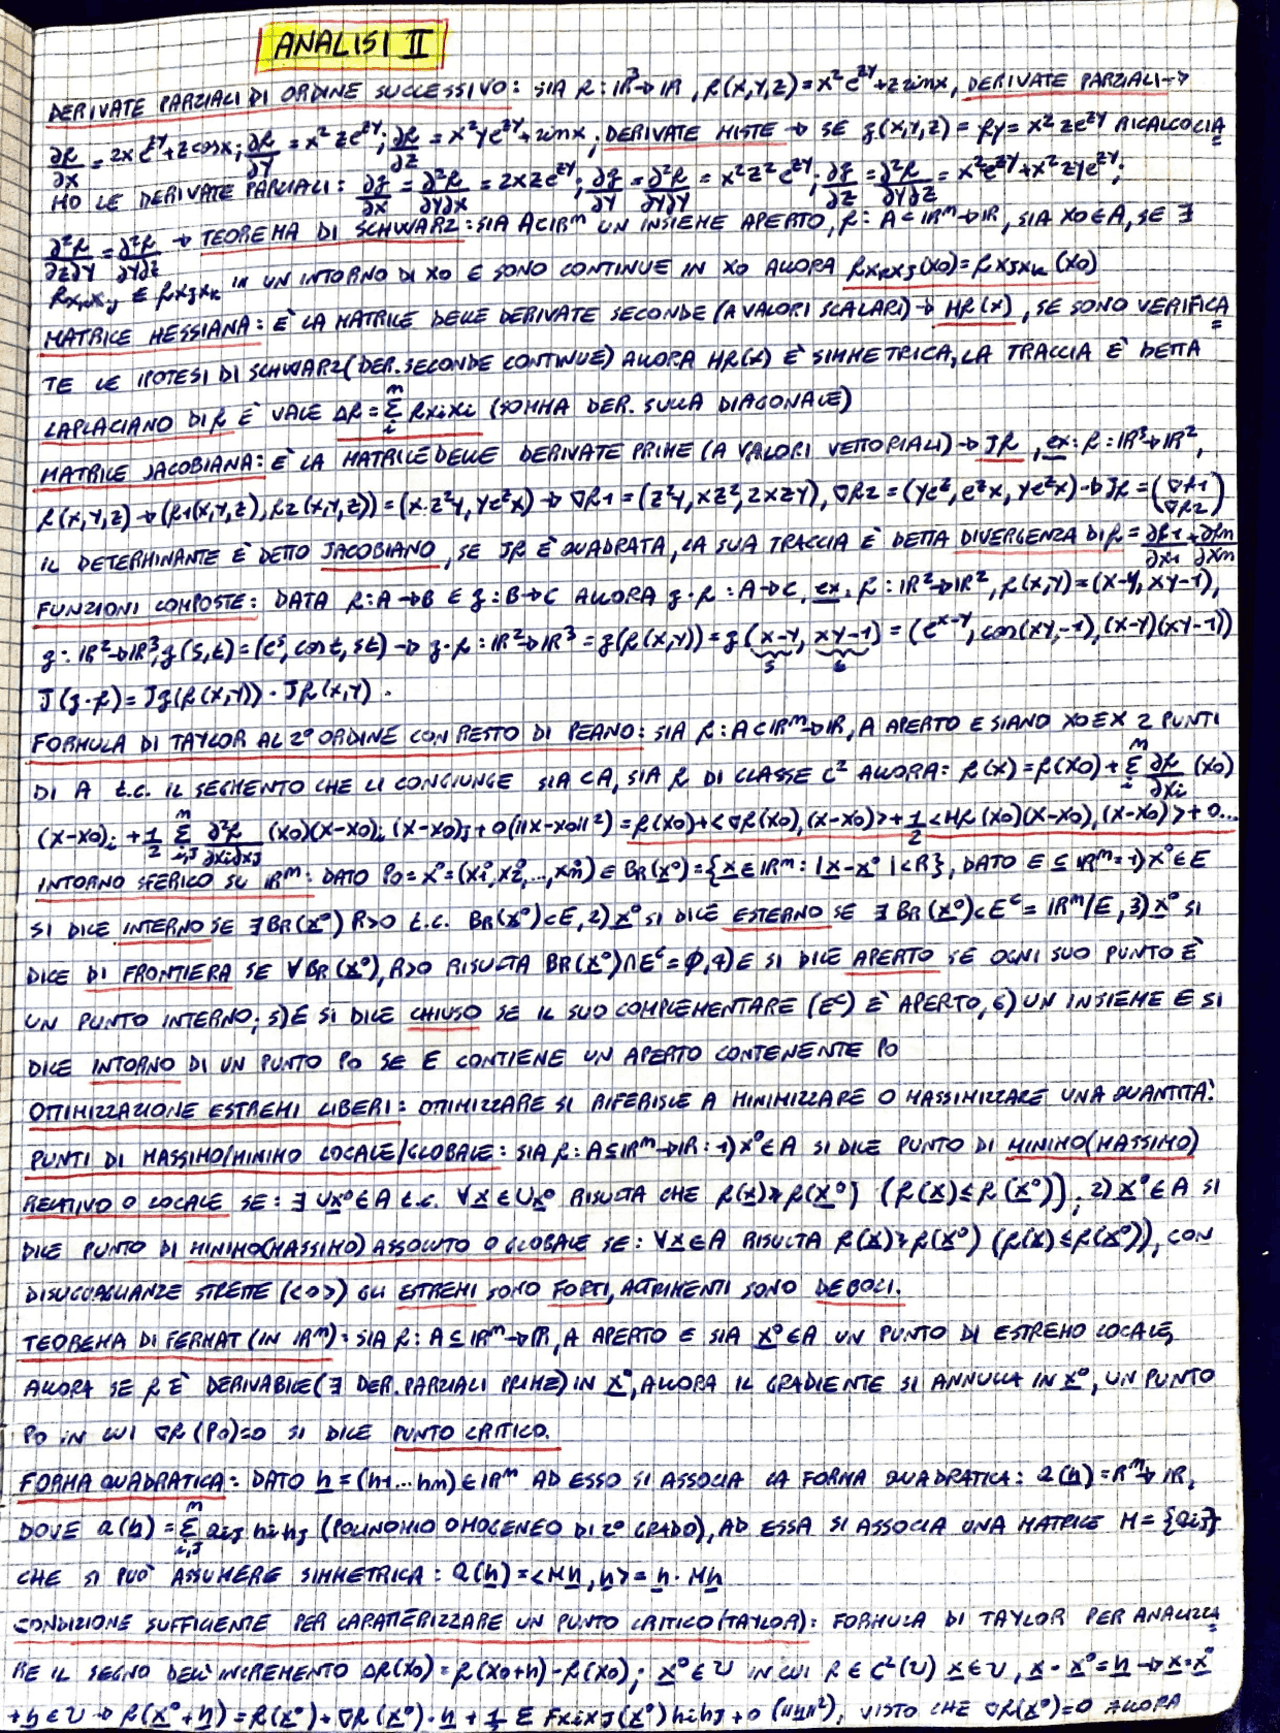 ANALISI II
DERIVATE PARZIALI DI ORDINE SUCCESSIVO: SIA f: IR³→IR, f(x,y,z)=x²e^{zy}+z sinx, DERIVATE PARZIALI→
∂f/∂x = 2xe^{zy}+z cosx; ∂f/∂y = x²ze^{zy}; ∂f/∂z = x²ye^{zy}+sinx; DERIVATE MISTE → SE g(x,y,z) = fy = x²ze^{zy} RICALCOLIA
MO LE DERIVATE PARZIALI: ∂g/∂x = ∂²f/∂y∂x = 2xze^{zy}; ∂g/∂y = ∂²f/∂y∂y = x²z²e^{zy}; ∂g/∂z = ∂²f/∂y∂z = x²e^{zy}+x²zye^{zy};
∂²f/∂z∂y = ∂²f/∂y∂z → TEOREMA DI SCHWARZ: SIA A⊂IR^m UN INSIEME APERTO, f: A⊂IR^m→IR, SIA X0∈A, SE ∃
fxkxj E fxjxk IN UN INTORNO DI X0 E SONO CONTINUE IN X0 ALLORA fxkxj(X0)=fxjxk(X0)
MATRICE HESSIANA: È LA MATRICE DELLE DERIVATE SECONDE (A VALORI SCALARI)→ Hf(x), SE SONO VERIFICA
TE LE IPOTESI DI SCHWARZ (DER. SECONDE CONTINUE) ALLORA Hf(x) È SIMMETRICA, LA TRACCIA È DETTA
LAPLACIANO DI f E VALE Δf = Σ_i^m fxixi (SOMMA DER. SULLA DIAGONALE)
MATRICE JACOBIANA: È LA MATRICE DELLE DERIVATE PRIME (A VALORI VETTORIALI)→ Jf, ex: f: IR³→IR²,
f(x,y,z)→(f1(x,y,z), f2(x,y,z)) = (x·z²y, ye^zx) → ∇f1 = (z²y, xz², 2xzy), ∇f2 = (ye^z, e^zx, ye^zx) → Jf = (∇f1 ∇f2)
IL DETERMINANTE È DETTO JACOBIANO, SE Jf È QUADRATA, LA SUA TRACCIA È DETTA DIVERGENZA DI f = ∂f1/∂x1 + ∂fm/∂xm
FUNZIONI COMPOSTE: DATA f: A→B E g: B→C ALLORA g·f: A→C, ex. f: IR²→IR², f(x,y)=(x-y, xy-1),
g: IR²→IR³, g(s,t)=(e^s, cost, st) → g·f: IR²→IR³ = g(f(x,y)) = g(x-y, xy-1) = (e^{x-y}, cos(xy-1), (x-y)(xy-1))
s t
J(g·f) = Jg(f(x,y)) · Jf(x,y).
FORMULA DI TAYLOR AL 2° ORDINE CON RESTO DI PEANO: SIA f: A⊂IR^m→IR, A APERTO E SIANO X0 E X 2 PUNTI
DI A t.c. IL SEGMENTO CHE LI CONGIUNGE SIA ⊂A, SIA f DI CLASSE C² ALLORA: f(x) = f(X0) + Σ_i^m ∂f/∂xi (X0)
(X-X0)i + 1/2 Σ_{i,j}^m ∂²f/∂xi∂xj (X0)(X-X0)i (X-X0)j + o(||X-X0||²) = f(X0)+<∇f(X0),(X-X0)>+1/2<Hf(X0)(X-X0),(X-X0)>+o...
INTORNO SFERICO SU IR^m: DATO P0=X°=(x1°,x2°,...,xm°) ∈ BR(X°)={X∈IR^m: |X-X°|<R}, DATO E⊆IR^m: 1) X°∈E
SI DICE INTERNO SE ∃ BR(X°) R>0 t.c. BR(X°)⊂E, 2) X° SI DICE ESTERNO SE ∃ BR(X°)⊂E^c = IR^m/E, 3) X° SI
DICE DI FRONTIERA SE ∀BR(X°), R>0 RISULTA BR(X°)∩E^c=ϕ, 4) E SI DICE APERTO SE OGNI SUO PUNTO È
UN PUNTO INTERNO; 5) E SI DICE CHIUSO SE IL SUO COMPLEMENTARE (E^c) È APERTO, 6) UN INSIEME E SI
DICE INTORNO DI UN PUNTO P0 SE E CONTIENE UN APERTO CONTENENTE P0
OTTIMIZZAZIONE ESTREMI LIBERI: OTTIMIZZARE SI RIFERISCE A MINIMIZZARE O MASSIMIZZARE UNA QUANTITÀ.
PUNTI DI MASSIMO/MINIMO LOCALE/GLOBALE: SIA f: A⊆IR^m→IR: 1) X°∈A SI DICE PUNTO DI MINIMO(MASSIMO)
RELATIVO O LOCALE SE: ∃ Ux°∈A t.c. ∀X∈Ux° RISULTA CHE f(X)≥f(X°) (f(X)≤f(X°)); 2) X°∈A SI
DICE PUNTO DI MINIMO(MASSIMO) ASSOLUTO O GLOBALE SE: ∀X∈A RISULTA f(X)≥f(X°) (f(X)≤f(X°)), CON
DISUGUAGLIANZE STRETTE (< O >) GLI ESTREMI SONO FORTI, ALTRIMENTI SONO DEBOLI.
TEOREMA DI FERMAT (IN IR^m): SIA f: A⊆IR^m→IR, A APERTO E SIA X°∈A UN PUNTO DI ESTREMO LOCALE,
ALLORA SE f È DERIVABILE (∃ DER. PARZIALI PRIME) IN X°, ALLORA IL GRADIENTE SI ANNULLA IN X°, UN PUNTO
P0 IN CUI ∇f(P0)=0 SI DICE PUNTO CRITICO.
FORMA QUADRATICA: DATO h=(h1...hm)∈IR^m AD ESSO SI ASSOCIA LA FORMA QUADRATICA: q(h)=R^m→IR,
DOVE q(h)=Σ_{i,j}^m aij hihj (POLINOMIO OMOGENEO DI 2° GRADO), AD ESSA SI ASSOCIA UNA MATRICE M={aij}
CHE SI PUÒ ASSUMERE SIMMETRICA: q(h)=<Mh,h>=h·Mh
CONDIZIONE SUFFICIENTE PER CARATTERIZZARE UN PUNTO CRITICO (TAYLOR): FORMULA DI TAYLOR PER ANALIZZA
RE IL SEGNO DELL'INCREMENTO Δf(X0)=f(X0+h)-f(X0); X°∈U IN CUI f∈C²(U) X∈U, X-X°=h → X=X°
+h∈U → f(X°+h)=f(X°)+∇f(X°)·h+1/2 Σ Fxixj(X°)hihj+o(||h||²), VISTO CHE ∇f(X°)=0 ALLORA